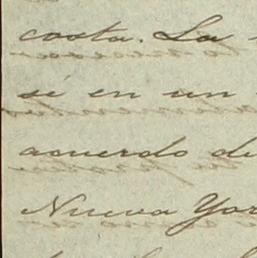 costa. La
sé en un
acuerdo de
Nueva Yor